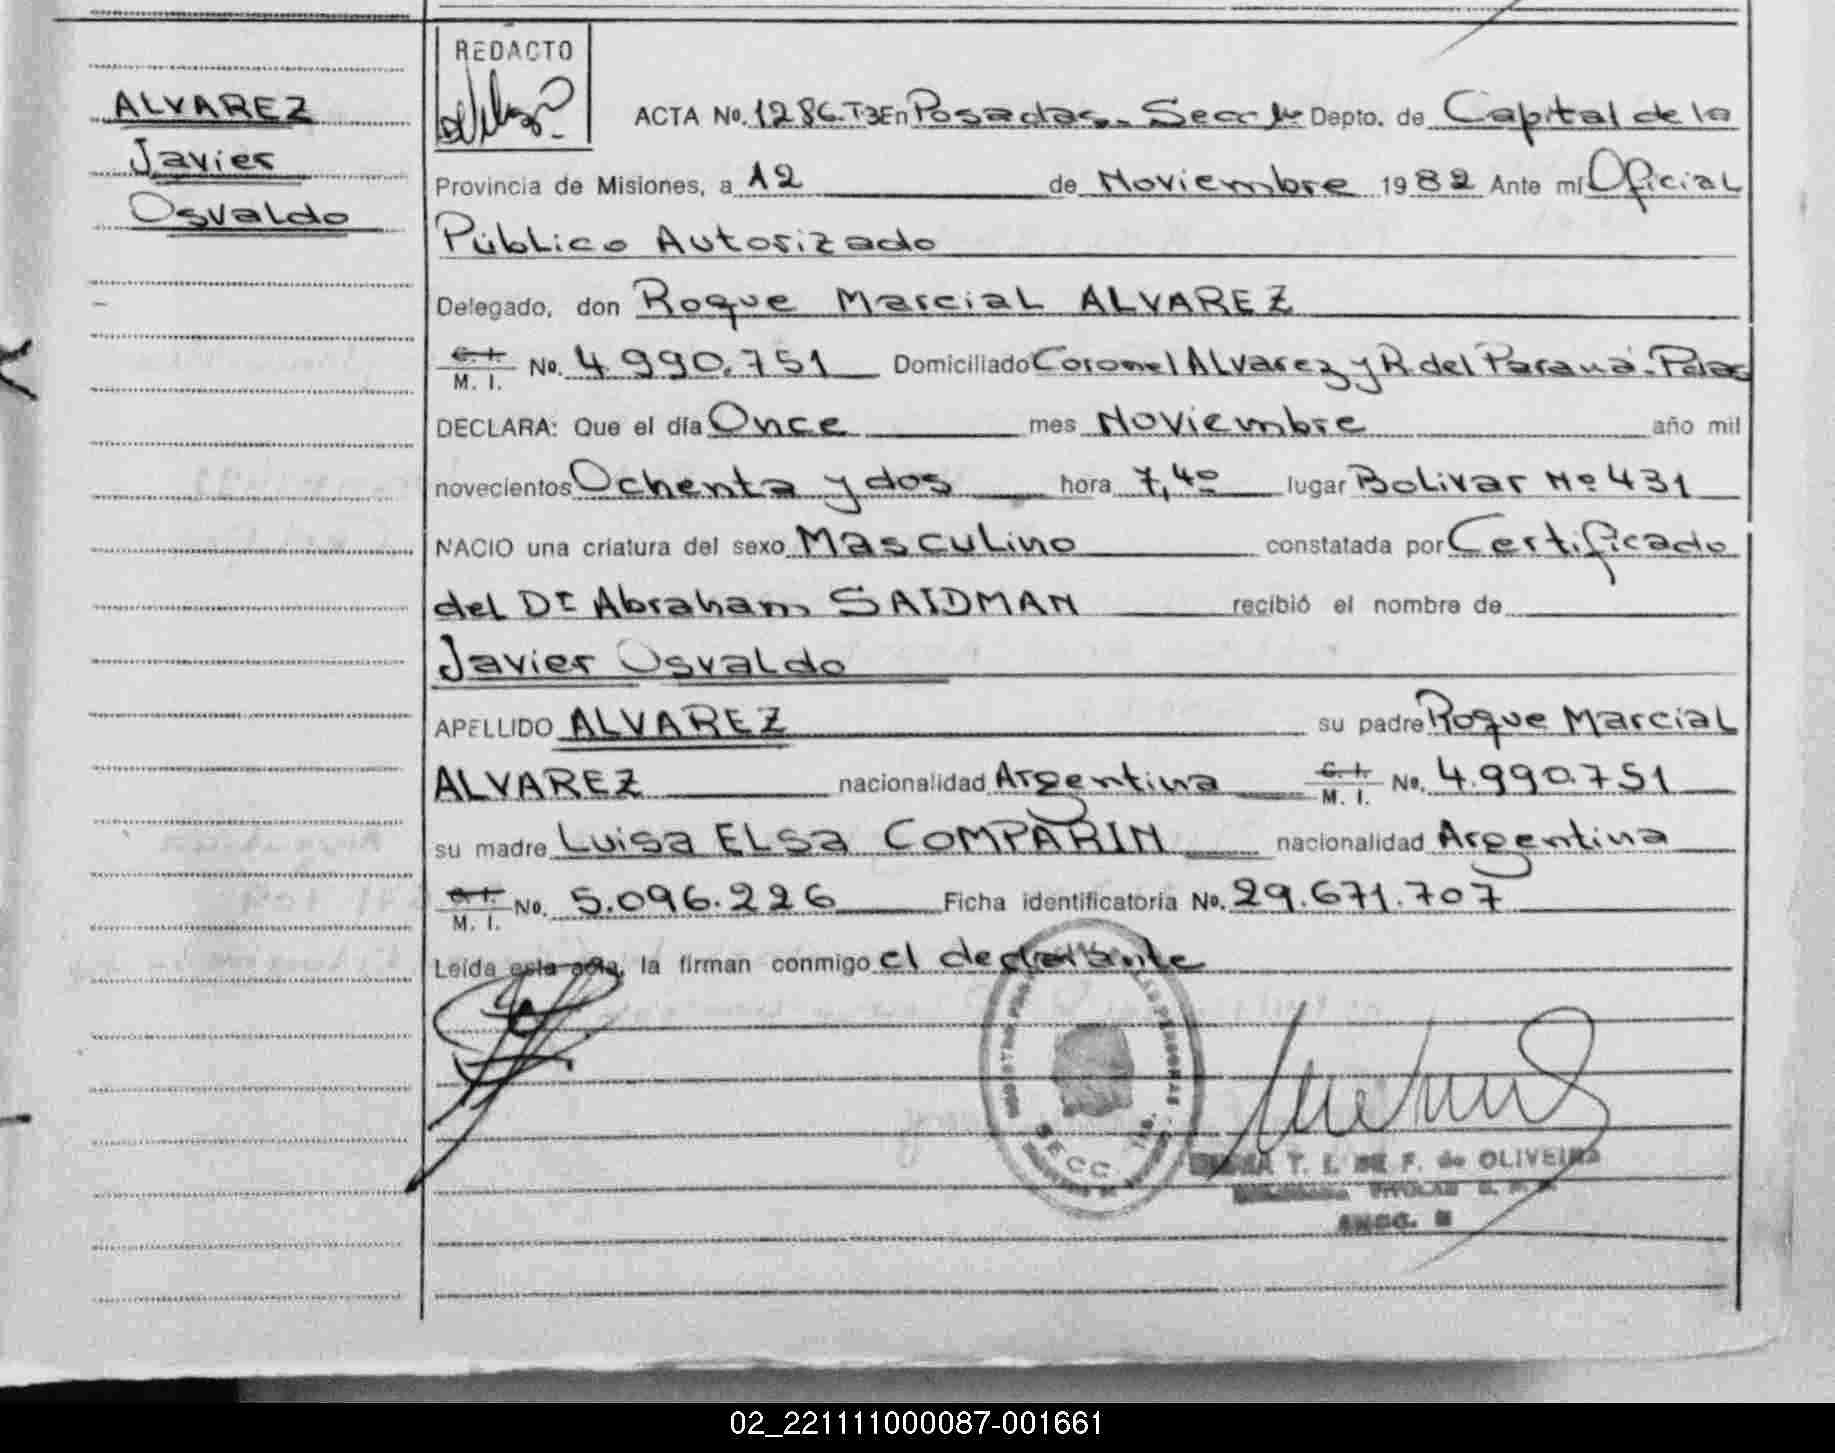 ALVAREZ
Javier
Osvaldo
REDACTO
ACTA No. 1286.T3 En Posadas. Secc 1a Depto. de Capital de la
Provincia de Misiones, a 12 de Noviembre 1982 Ante mí Oficial
Público Autorizado
Delegado, don Roque Marcial ALVAREZ
C. I. M. I. No. 4.990.751 Domiciliado Coronel Alvarez y R. del Paraná. Pdas
DECLARA: Que el día Once mes Noviembre año mil
novecientos Ochenta y dos hora 7,40 lugar Bolivar Nº 431
NACIO una criatura del sexo Masculino constatada por Certificado
del Dr Abraham SAIDMAN recibió el nombre de
Javier Osvaldo
APELLIDO ALVAREZ su padre Roque Marcial
ALVAREZ nacionalidad Argentina C. I. M. I. No. 4.990.751
su madre Luisa ELSa COMPARIN nacionalidad Argentina
C. I. M. I. No. 5.096.226 Ficha identificatoria No. 29.671.707
Leída esta acta, la firman conmigo el declarante
SECC. 1a.
T. I. DE F. de OLIVEIRA
02_221111000087-001661